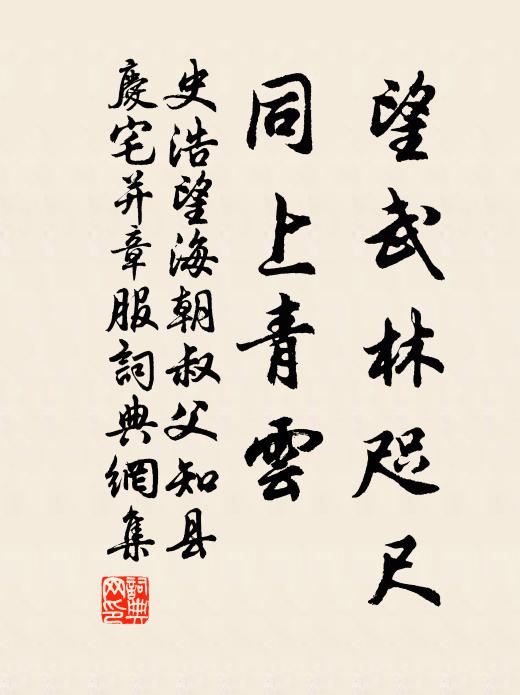 望武林咫尺
同上青雲
史浩望海朝叔父知县
慶宅并章服詞典網集
詞典網印